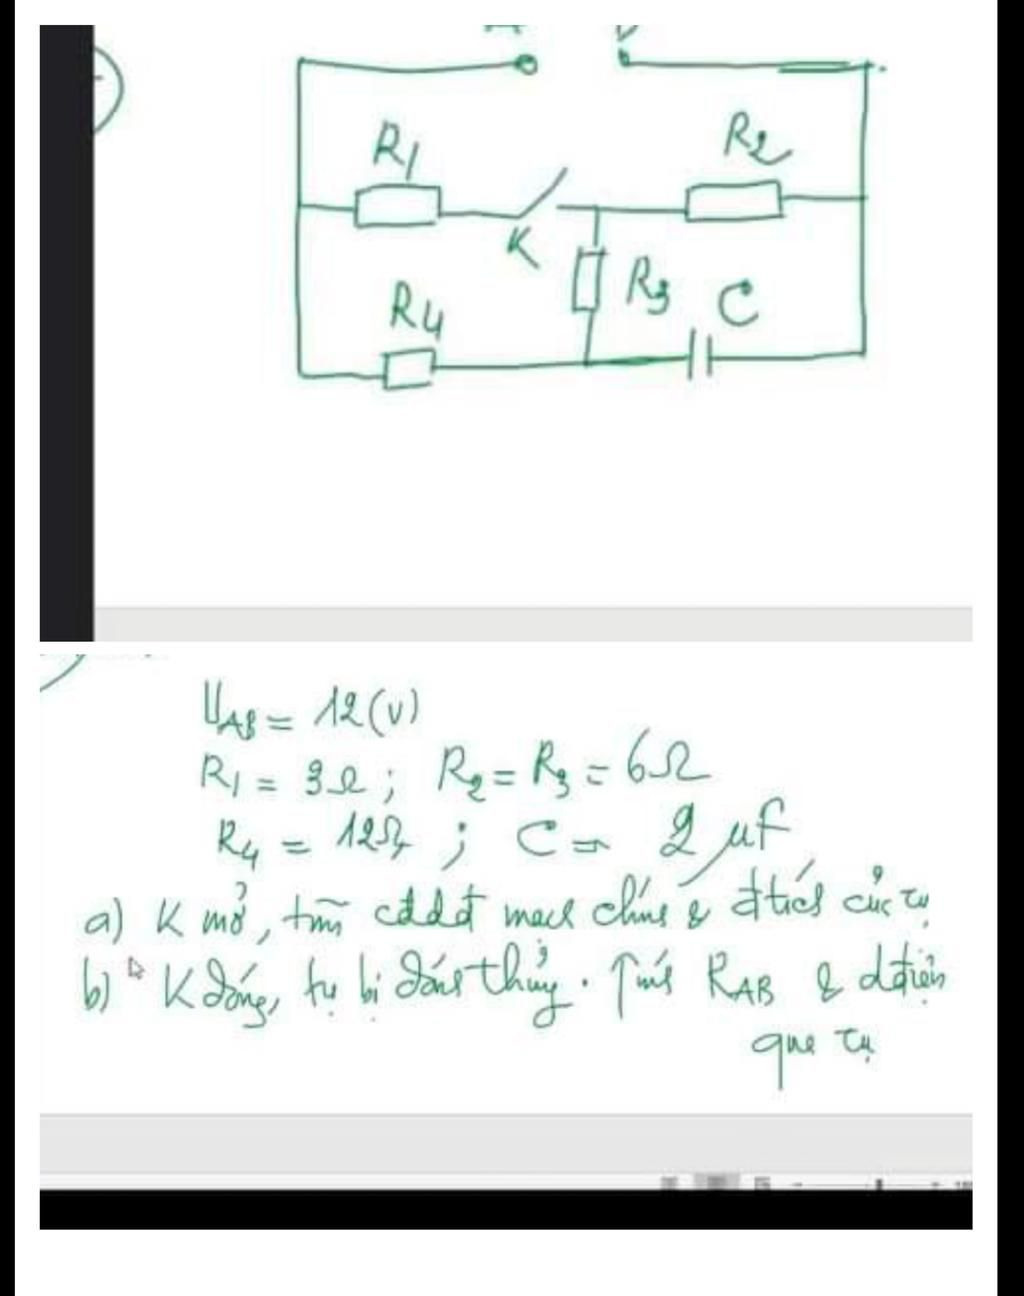 A B
R1
R2
K
R3
C
R4
UAB = 12(V)
R1 = 3Ω; R2 = R3 = 6Ω
R4 = 12Ω; C = 2μF
a) K mở, tìm cđdđ mạch chính & đtích của tụ
b) K đóng, tụ bị đánh thủng. Tính RAB & dđiện
qua tụ